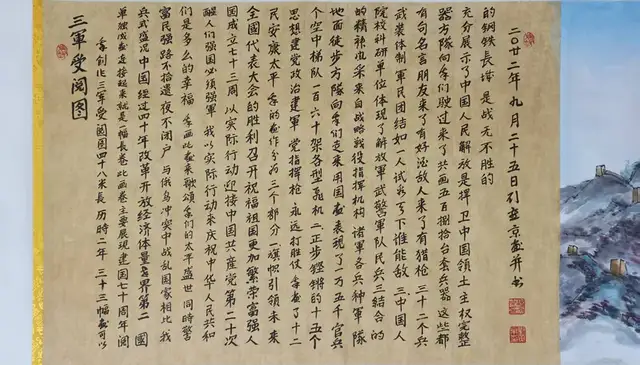 三軍受阅图
创作三军受阅图四十八米長 历时二年 三十三幅画可以
单独成画连接起来就是一幅長卷 此画卷主要展现建国七十周年阅
兵式盛况 中国经过四十年改革开放经济体量世界第二 國
富民强路不拾遗夜不闭户 与俄乌冲突中战乱国家相比我
们是多么的幸福 画此画来歌颂们的太平盛世 同時警
醒人们强国必须强军 我以实际行动来庆祝中华人民共和
国成立七十三周 以实际行动迎接中国共産党第二十次
全國代表大会的胜利召开祝福祖国更加繁荣富强人
民安康太平 的画作分为三个部分 一旗帜引领未来
思想建党政治建軍 党指挥枪 永远打胜仗 画了十二
个空中梯队一百六十架各型飞机 二正步铿锵的十五个
地面徒步方隊向们走来用国画表现了一万五千官兵
的精神 来自战略战役指挥机构 诸軍各兵种軍隊
院校科研单位体现了解放軍武警軍队民兵三结合的
武装体制軍民团结如一人试看天下谁能敌 三中国人
有句名言朋友来了有好酒敌人来了有猎枪 三十二个兵
器方隊向们驶过来了共画五百捌拾台套兵器 这些都
充分展示了中国人民解放是捍卫中国领土主权完整
的钢铁長城 是战无不胜的
二〇廿二年九月二十五日 京画并书